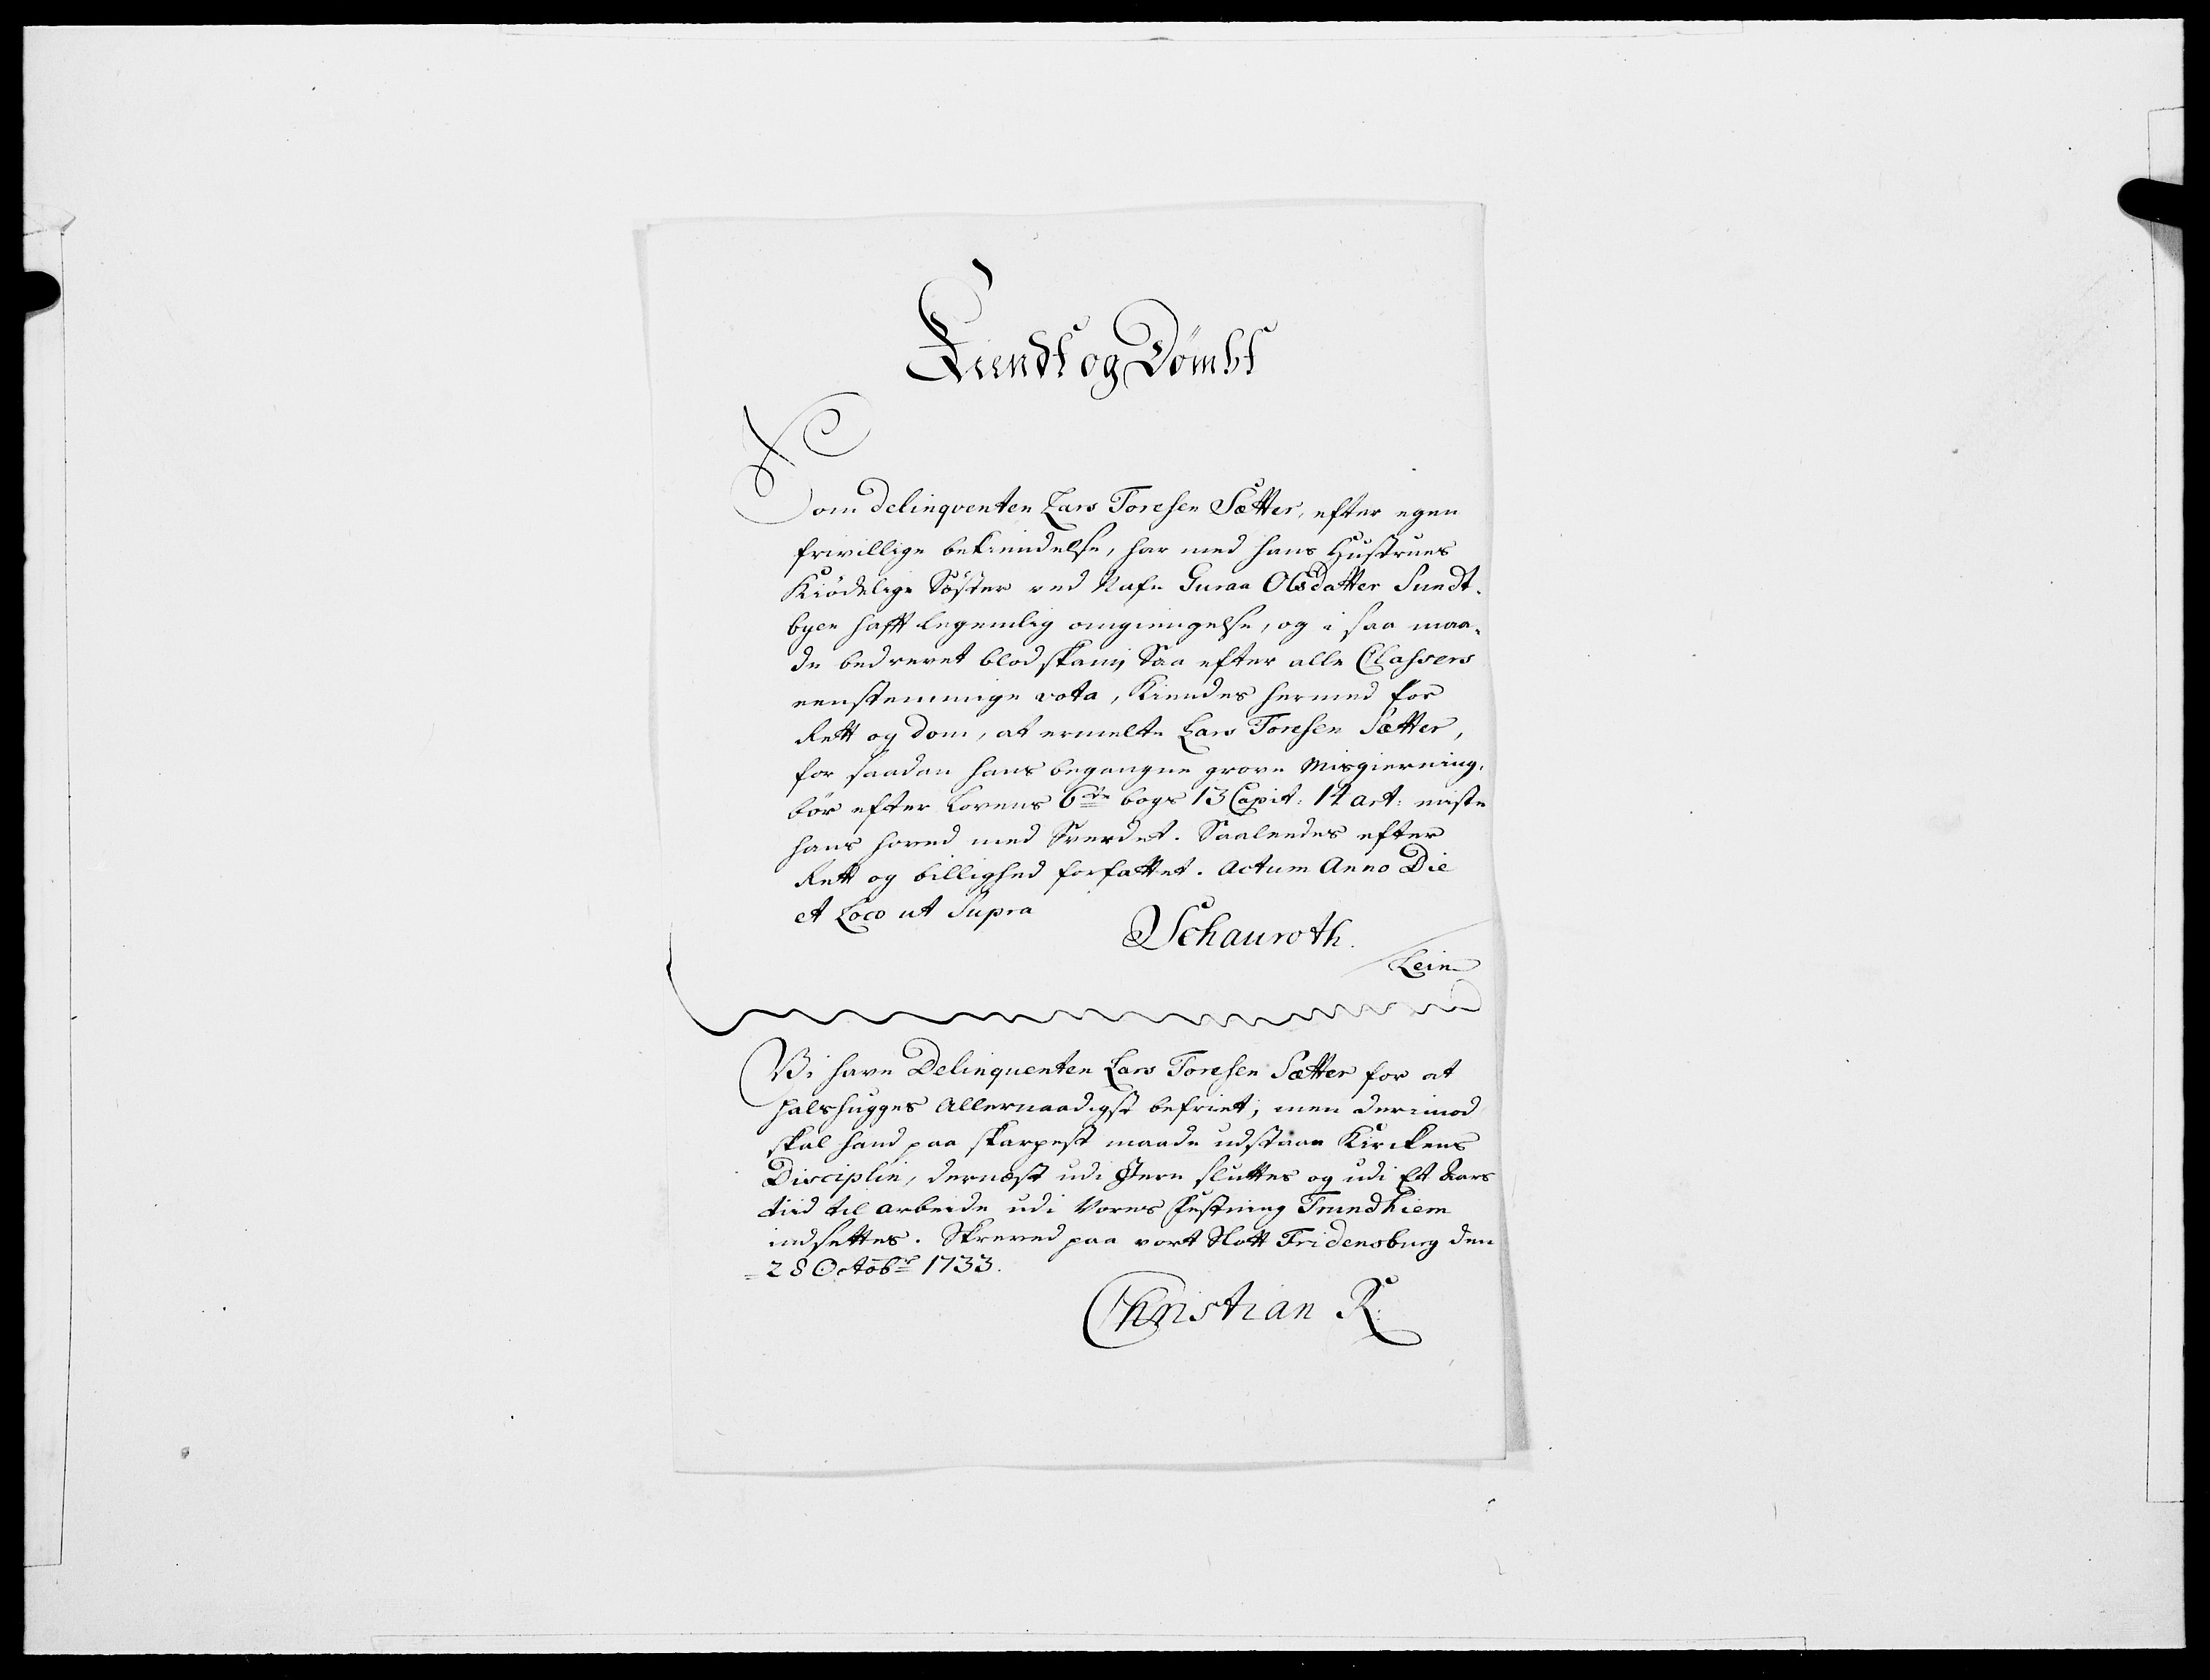 Kiendt og Dømbt
Som delinqventen Lars Toresen Sætter, efter egen
frivillige bekiendelse, har med hans Hustrues
Kiødelige Søster ved Nafn Guraa Olsdatter Sundt-
byen hafft legemlig omgiengelse, og i saa maa-
de bedrevet blodskam; Saa efter alle Classers
eenstemmige vota, kiendes hermed for
Rett og dom, at ermelte Lars Toresen Sætter,
for saadan hans begangne grove Misgierning,
bør efter Lovens 6te bogs 13 Capit: 14 art: miste
hans hoved med Sverdet. Saaledes efter
Rett og billighed forfattet. Actum Anno Die
et Loco ut Supra
Schauroth.
Lein
Vi have Delinquenten Lars Toresen Sætter for at
halshugges Allernaadigst befriet; men derimod
skal hand paa skarpest maade udstaae Kirckens
Disciplin, dernæst udi Jern sluttes og udi Et Aars
tiid til arbeide udi Vores Festning Trundhiem
indsettes. Skreved paa vort Slott Fridensburg den
28 Octobr 1733.
Christian R: